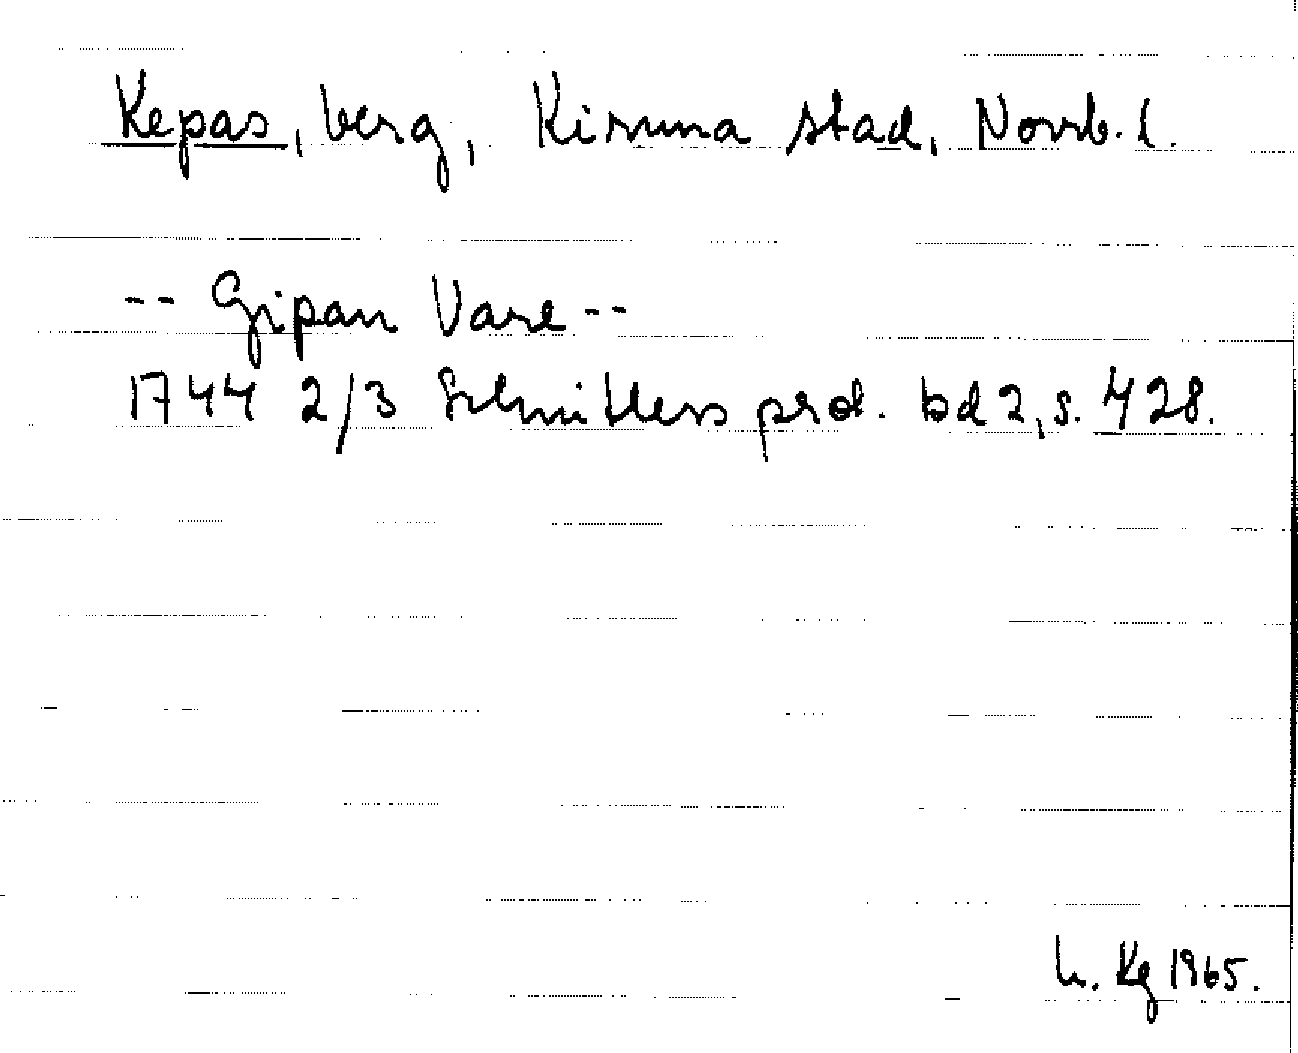 Kepas, berg, Kiruna stad, Norrb. l.
-- Gipan Vare --
1744 2/3 Schnitlers prot. bd 2, s. 428.
h. Kg 1965.